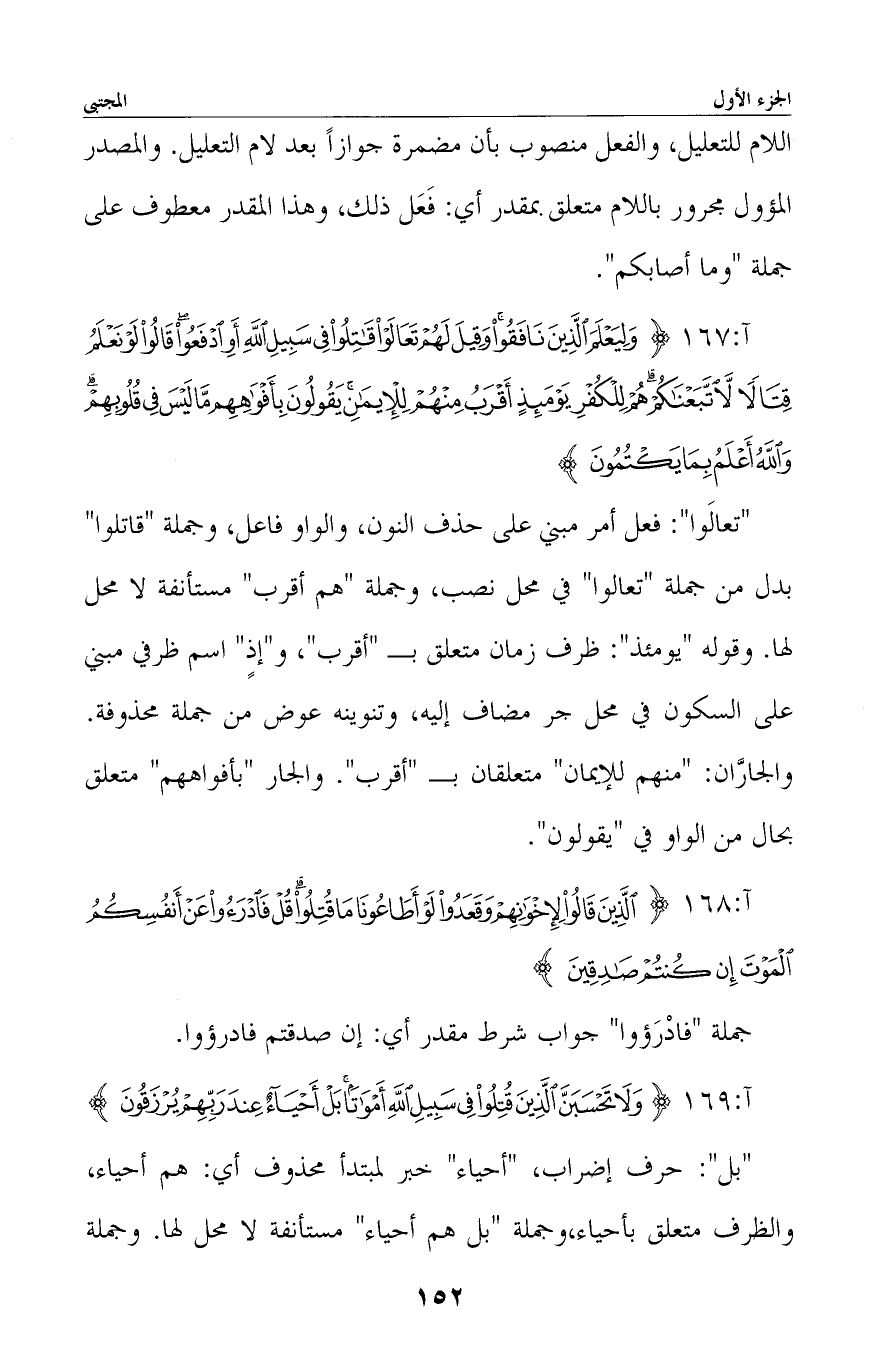 الجزء الأول المجتبى
اللام للتعليل، والفعل منصوب بأن مضمرة جوازاً بعد لام التعليل. والمصدر
المؤول مجرور باللام متعلق بمقدر أي: فَعَل ذلك، وهذا المقدر معطوف على
جملة "وما أصابكم".
آ:١٦٧ ﴿ وَلِيَعْلَمَ ٱلَّذِينَ نَافَقُوا۟ۚ وَقِيلَ لَهُمْ تَعَالَوْا۟ قَٰتِلُوا۟ فِى سَبِيلِ ٱللَّهِ أَوِ ٱدْفَعُوا۟ۖ قَالُوا۟ لَوْ نَعْلَمُ
قِتَالًا لَّٱتَّبَعْنَٰكُمْۗ هُمْ لِلْكُفْرِ يَوْمَئِذٍ أَقْرَبُ مِنْهُمْ لِلْإِيمَٰنِۚ يَقُولُونَ بِأَفْوَٰهِهِم مَّا لَيْسَ فِى قُلُوبِهِمْۗ
وَٱللَّهُ أَعْلَمُ بِمَا يَكْتُمُونَ ﴾
"تعالَوا": فعل أمر مبني على حذف النون، والواو فاعل، وجملة "قاتلوا"
بدل من جملة "تعالوا" في محل نصب، وجملة "هم أقرب" مستأنفة لا محل
لها. وقوله "يومئذ": ظرف زمان متعلق بـ "أقرب"، و"إذٍ" اسم ظرفي مبني
على السكون في محل جر مضاف إليه، وتنوينه عوض من جملة محذوفة.
والجارَّان: "منهم للإيمان" متعلقان بـ "أقرب". والجار "بأفواههم" متعلق
بحال من الواو في "يقولون".
آ:١٦٨ ﴿ ٱلَّذِينَ قَالُوا۟ لِإِخْوَٰنِهِمْ وَقَعَدُوا۟ لَوْ أَطَاعُونَا مَا قُتِلُوا۟ۗ قُلْ فَٱدْرَءُوا۟ عَنْ أَنفُسِكُمُ
ٱلْمَوْتَ إِن كُنتُمْ صَٰدِقِينَ ﴾
جملة "فادْرَؤوا" جواب شرط مقدر أي: إن صدقتم فادرؤوا.
آ:١٦٩ ﴿ وَلَا تَحْسَبَنَّ ٱلَّذِينَ قُتِلُوا۟ فِى سَبِيلِ ٱللَّهِ أَمْوَٰتًۢاۚ بَلْ أَحْيَآءٌ عِندَ رَبِّهِمْ يُرْزَقُونَ ﴾
"بل": حرف إضراب، "أحياء" خبر لمبتدأ محذوف أي: هم أحياء،
والظرف متعلق بأحياء،وجملة "بل هم أحياء" مستأنفة لا محل لها. وجملة
١٥٢